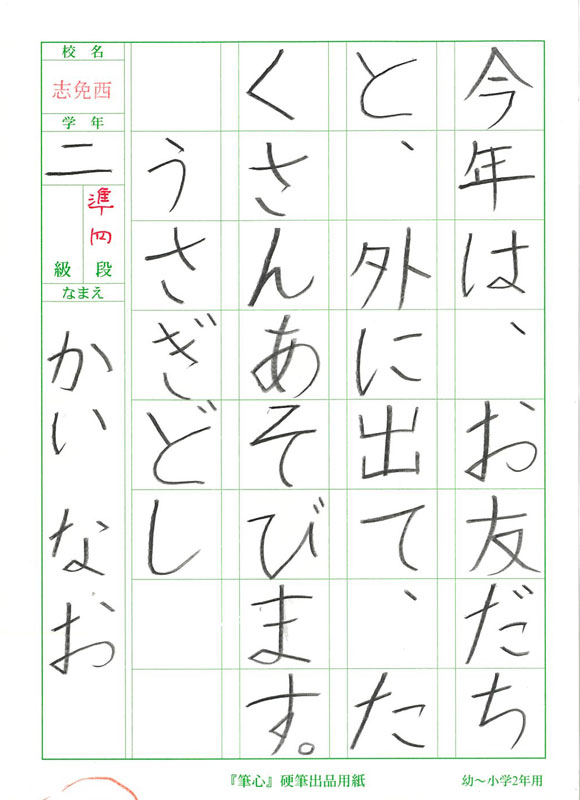 今年は、お友だち
と、外に出て、た
くさんあそびます。
うさぎどし
校名
志免西
学年
二
準四
段
級
なまえ
かい なお
『筆心』硬筆出品用紙
幼～小学2年用